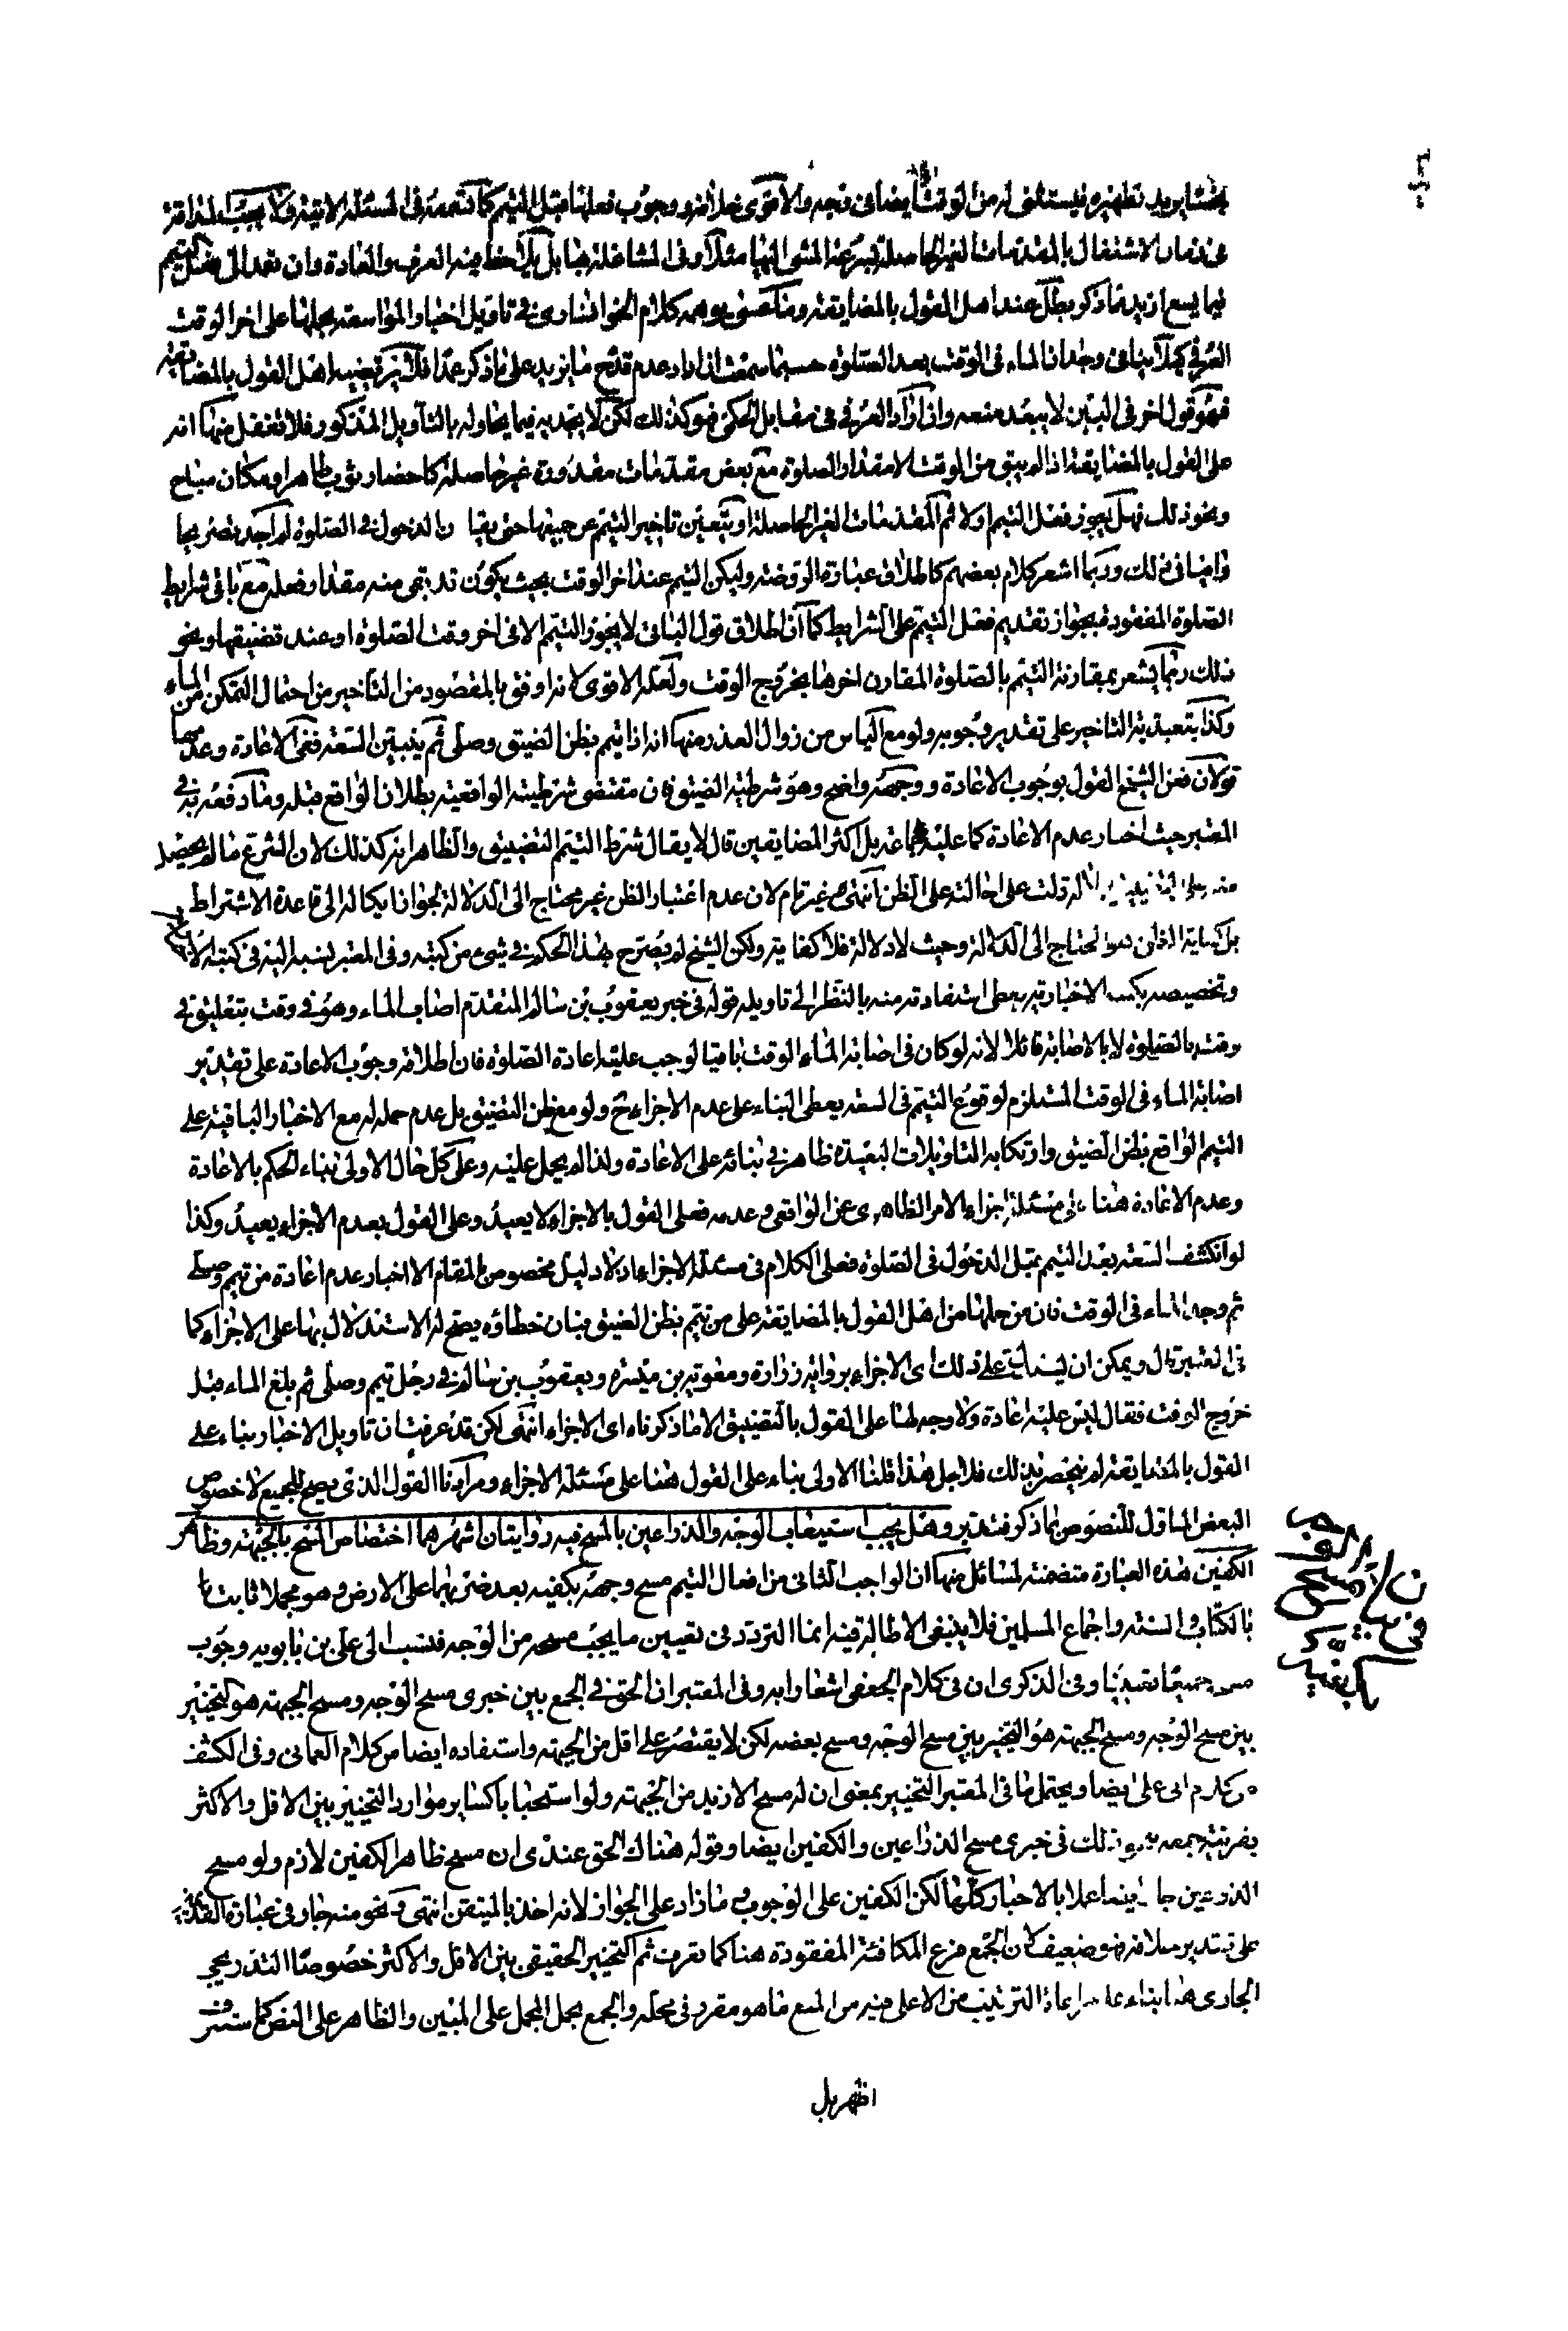 يريد تطهيره فيستثنى له من الوقت ايضا فى وجه والاقوى خلافه ووجوب فعلها قبل التيمم كما تسمعه فى المسئلة الاتية ولا يجب
الاشتغال بالمقدمات الغير الحاصلة المشى اليها مثلا وفى المشاغلة بها بل يلاحظ منه العرف والعادة وان تعدى الى فعل التيمم
فيما يسع ازيد مما ذكر بطل عند اهل القول بالمضايقة وما يوهمه كلام الخوانسارى فى تاويل اخبار المواسعة بحملها على اخر الوقت
العرفى كيلا ينافى وجدان الماء فى الوقت بعد الصلوة حسبما سمعت ان اراد عدم قدح ما يزيد على ما ذكر عمدا فلا اهل القول بالمضايقة
فهو قول اخر فى البين لا يبعد منعه وان اراد العرفى فى مقابل الحكمى فهو كذلك لكن لا يجديه فيما يحاوله بالتأويل المذكور فلا تغفل منها انه
على القول بالمضايقة اذا لم يبق من الوقت الا مقدار الصلوة مع بعض مقدمات مقدورة غير حاصلة كاحضار ثوب طاهر او مكان مباح
ونحو ذلك فهل يجوز فعل التيمم اولا ثم المقدمات الغير الحاصلة او يتعين تاخير التيمم عن جميعها حتى الدخول فى الصلوة لم اجد تصريحا
وافيا فى ذلك وربما اشعر كلام بعضهم كاطلاق عبارة الروضة وليكن التيمم عند اخر الوقت بحيث يكون قد بقى منه مقدار فعله مع باقى شرايط
الصلوة المفقودة بجواز تقديم فعل التيمم على الشرايط كما ان اطلاق قول الباقى لا يجوز التيمم الا فى اخر وقت الصلوة او عند تضيقها ونحو
ذلك ربما يشعر بمقارنة التيمم بالصلوة المقارن اخرها بخروج الوقت ولعله الاقوى لانه اوفق بالمقصود من التأخير من احتمال التمكن من الماء
وكذا بتعبدية التاخير على تقدير وجوبه ولو مع الياس من زوال العذر ومنها انه اذا تيمم بظن الضيق وصلى ثم يتبين السعة ففى الاعادة وعدمها
قولان فعن الشيخ القول بوجوب الاعادة ووجهه واضح وهو شرطية الضيق فان مقتضى شرطيته الواقعية بطلان الواقع قبله وما دفعه به فى
المعتبر حيث اختار عدم الاعادة كما عليه جماعة بل اكثر المضايقين قال لا يقال شرط التيمم التضييق والظاهر انه كذلك لان الشرع ما لم يحصل
دلت على احالته على الظن انتهى غير تام لان عدم اعتبار الظن غير محتاج الى الدلالة لجواز ايكاله الى قاعدة الاشتراط
بل كفاية الظن هو المحتاج الى الدلالة وحيث لا دلالة فلا كفاية ولكن الشيخ لم يصرح بهذا الحكم فى شىء من كتبه وفى المعتبر نسبه اليه فى كتبه
وتخصيصه بكتب الاخبار يعطى استفادته منه بالنظر الى تاويله قوله فى خبر يعقوب بن سالم المتقدم اصاب الماء وهو فى وقت بتعليق فى
وقت بالصلوة لا بالاصابة قائلا لانه لو كان فى اصابة الماء الوقت باقيا لوجب عليه اعادة الصلوة فان اطلاقه وجوب الاعادة على تقدير
اصابة الماء فى الوقت المستلزم لوقوع التيمم فى السعة يعطى البناء على عدم الاجزاء ح ولو مع ظن التضيق بل عدم حمله له مع الاخبار الباقية على
التيمم الواقع بظن الضيق وارتكابه التاويلات البعيدة ظاهر فى بنائه على الاعادة ولذا لم يحمل عليه وعلى كل حال الاولى بناء الحكم بالاعادة
وعدم الاعادة هنا على مسئلة اجزاء الامر الظاهرى عن الواقعى وعدمه فعلى القول بالاجزاء لا يعيد وعلى القول بعدم الاجزاء يعيد وكذا
لو انكشف السعة بعد التيمم قبل الدخول فى الصلوة فعلى الكلام فى مسئلة الاجزاء اذ لا دليل مخصوص بالمقام الا اخبار عدم اعادة من تيمم وصلى
ثم وجد الماء فى الوقت فان من حملها من اهل القول بالمضايقة على من تيمم بظن الضيق فبان خطاؤه يصح له الاستدلال بها على الاجزاء كما
فى المعتبر قال ويمكن ان يستدل على ذلك اى الاجزاء برواية زرارة ومعوية بن ميسرة ويعقوب بن سالم فى رجل تيمم وصلى ثم بلغ الماء قبل
خروج الوقت فقال ليس عليه اعادة ولا وجه لها على القول بالتضييق الا ما ذكرناه اى الاجزاء انتهى لكن قد عرفت ان تاويل الاخبار بناء على
القول بالمضايقة لم ينحصر بذلك فلاجل هذا قلنا الاولى بناء على القول هنا على مسئلة الاجزاء ومرادنا القول الذى يصح للجميع لا خصوص
البعض الماول للنصوص بما ذكر فتدبر وهل يجب استيعاب الوجه والذراعين بالمسح فيه روايتان اشهرهما اختصاص المسح بالجبهة وظاهر
الكفين هذه العبارة متضمنة لمسائل منها ان الواجب الثانى من افعال التيمم مسح وجهه بكفيه بعد ضربهما على الارض وهو مجملا ثابت
بالكتاب والسنة واجماع المسلمين فلا ينبغى الاطالة فيه انما التردد فى تعيين ما يجب مسحه من الوجه فنسب الى على بن بابويه وجوب
مسحه جميعا تعبديا وفى الذكرى ان فى كلام الجعفى اشعارا به وفى المعتبر ان الحق فى الجمع بين خبرى مسح الوجه ومسح الجبهة هو التخيير
بين مسح الوجه ومسح الجبهة هو التخيير بين مسح الوجه ومسح بعضه لكن لا يقتصر على اقل من الجبهة واستفاده ايضا من كلام العمانى وفى الكشف
كلام ابى على ايضا ويحتمل ما فى المعتبر التخيير بمعنى ان له مسح الازيد من الجبهة ولو استحبابا كساير موارد التخيير بين الاقل والاكثر
بقرينة جمعه ذلك فى خبرى مسح الذراعين والكفين ايضا وقوله هناك الحق عندى ان مسح ظاهر الكفين لازم ولو مسح
الذراعين جاز ايضا عملا بالاخبار كلها لكن الكفين على الوجوب وما زاد على الجواز لانه اخذ بالمتيقن انتهى ونحو منه جار فى عبارة
على تقدير خلافه فهو ضعيف لان الجمع فرع المكافئة المفقودة هنا كما تعرف ثم التخيير الحقيقى بين الاقل والاكثر خصوصا التدريجى
الجارى هنا بناء على مراعاة الترتيب من الاعلى فيه من المنع ما هو مقرر فى محله والجمع بحمل المجمل على المبين والظاهر على النص كما ستعرف
اظهر بل